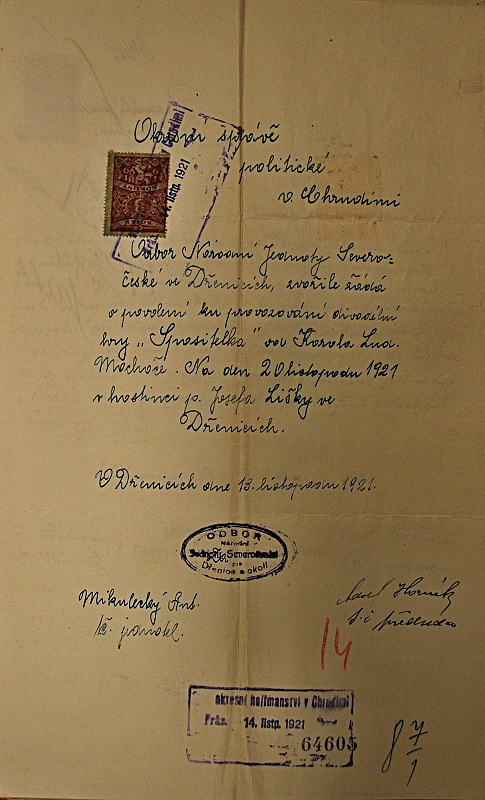 Okresní správě
politické
v Chrudimi
Odbor Národní Jednoty Severo-
české ve Dřenicích, zvořile žádá
o povolení ku provozování divadelní
hry „Spasitelka" od Karola Lud.
Machoče. Na den 20 listopadu 1921
v hostinci p. Josefa Lišky ve
Dřenicích.
V Dřenicích dne 13. listopadu 1921.
ODBOR
Národní
Jednoty Severočeské
pro
Dřenice a okolí
Mikulecký Ant.
t.č. jednatel.
Horník
t.č. předseda
14
okresní hejtmanství v Chrudimi
Präs. 14. listp. 1921
64605
8 7/1